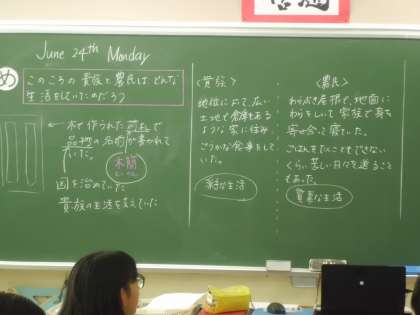 June 24th Monday
め
このころの貴族と農民は、どんな
生活をしていたのだろう
← 木で作られた荷札で
品物の名前が書かれて
いた。
木簡
国を治めていた
貴族の生活を支えていた
〈貴族〉
地位に応じて、広い
土地で倉庫もある
ような家に住み
ごうかな食事をして
いた。
豪華な生活
〈農民〉
わらぶき屋根で、地面に
わらをしいて家族で身を
寄せ合って寝ていた。
ごはんをたくこともできない
くらい苦しい日々を送ること
もあった。
質素な生活